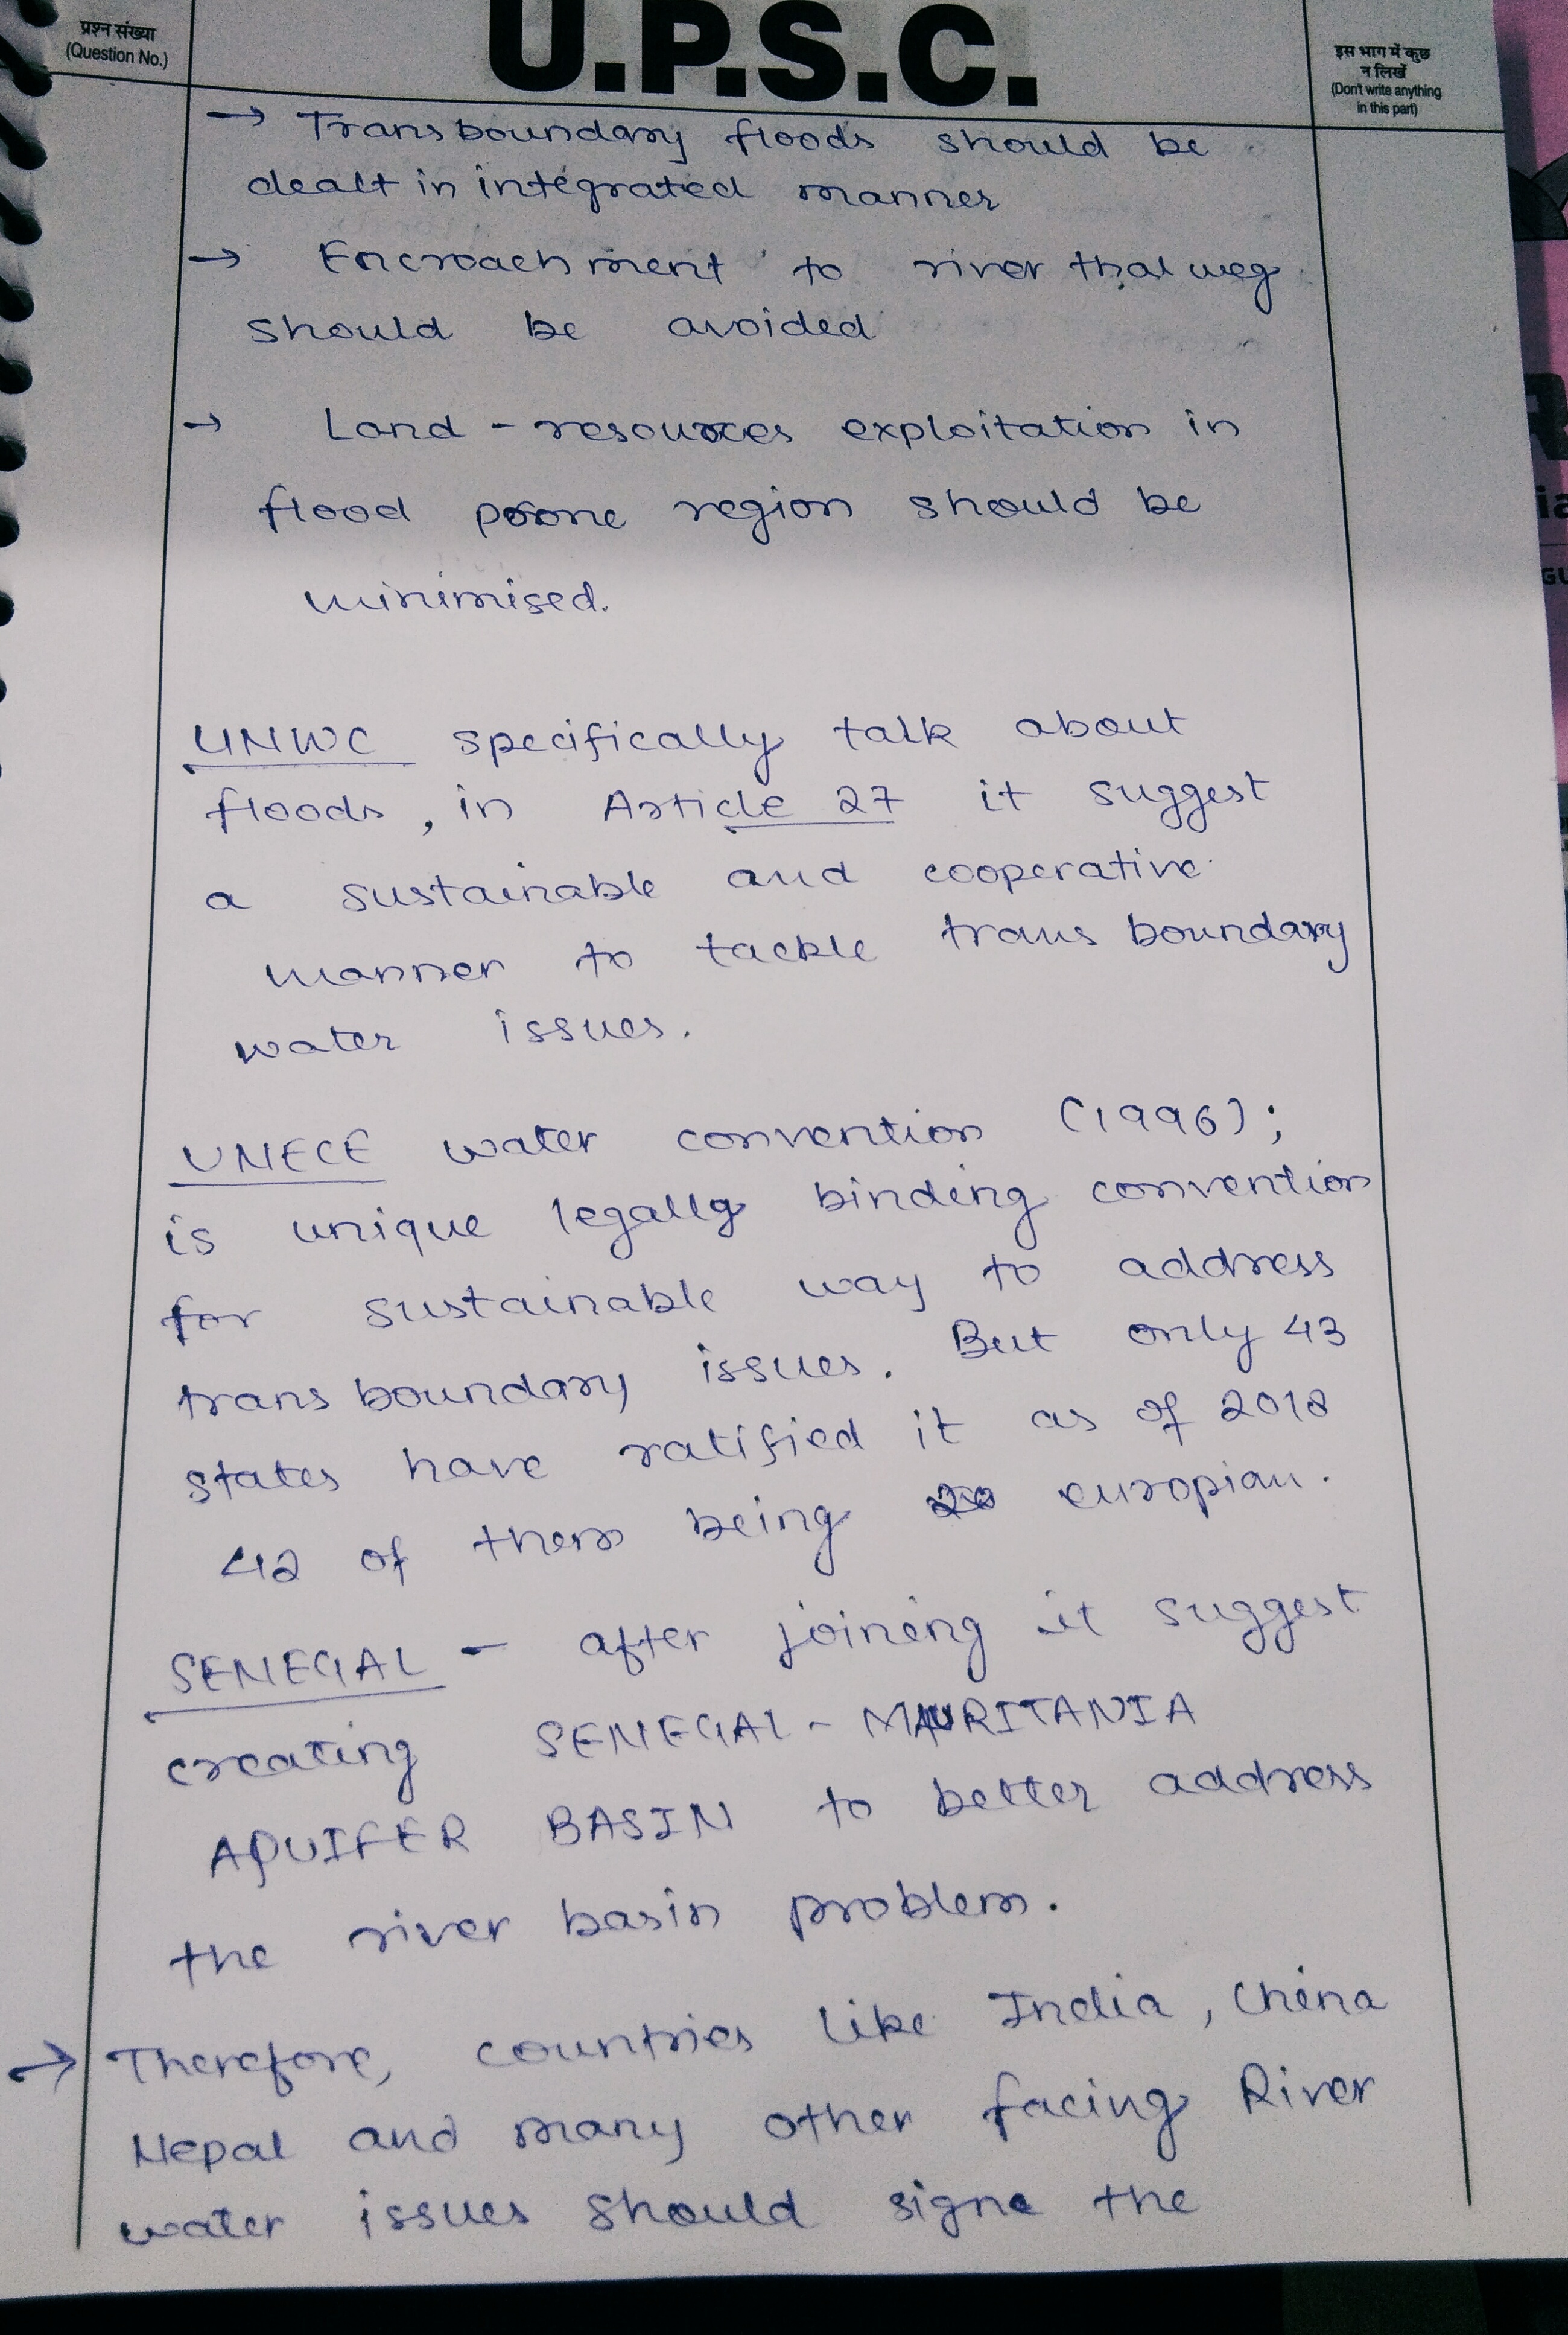 प्रश्न संख्या
(Question No.)
U.P.S.C.
इस भाग में कुछ
न लिखें
(Don't write anything
in this part)
→ Transboundary floods should be
dealt in integrated manner
→ Encroachment to river thalweg
should be avoided
→ Land - resources exploitation in
flood prone region should be
minimised.
UNWC specifically talk about
floods, in Article 27 it suggest
a sustainable and cooperative
manner to tackle trans boundary
water issues.
UNECE water convention (1996);
is unique legally binding convention
for sustainable way to address
trans boundary issues. But only 43
states have ratified it as of 2018
42 of them being europian.
SENEGAL - after joining it suggest
creating SENEGAL - MAURITANIA
AQUIFER BASIN to better address
the river basin problem.
→ Therefore, countries like India, China
Nepal and many other facing River
water issues should signe the